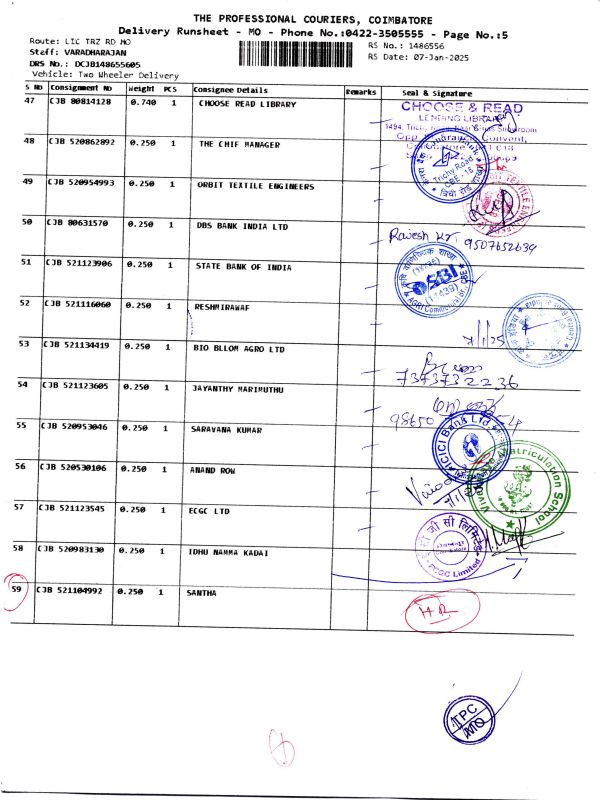 THE PROFESSIONAL COURIERS, COIMBATORE
Delivery Runsheet - MO - Phone No.:0422-3505555 - Page No.:5
Route: LIC TRZ RD MO
RS No.: 1486556
Staff: VARADHARAJAN
RS Date: 07-Jan-2025
DRS No.: DCJB148655605
Vehicle: Two Wheeler Delivery
S No Consignment No Weight PCS Consignee Details Remarks Seal & Signature
47 CJB 80814128 0.740 1 CHOOSE READ LIBRARY
CHOOSE & READ
LENDING LIBRARY
48 CJB 520862892 0.250 1 THE CHIF MANAGER
Trichy Road
49 CJB 520954993 0.250 1 ORBIT TEXTILE ENGINEERS
50 CJB 80631570 0.250 1 DBS BANK INDIA LTD
9507652639
51 CJB 521123906 0.250 1 STATE BANK OF INDIA
SBI
52 CJB 521116060 0.250 1 RESHMIRAWAF
7/1/25
53 CJB 521134419 0.250 1 BIO BLLOM AGRO LTD
7373732236
54 CJB 521123605 0.250 1 JAYANTHY MARIMUTHU
55 CJB 520953046 0.250 1 SARAVANA KUMAR
ICICI Bank Ltd
56 CJB 520530106 0.250 1 ANAND ROW
Matriculation School
57 CJB 521123545 0.250 1 ECGC LTD
58 CJB 520983130 0.250 1 IDHU NAMMA KADAI
ECGC Limited
59 CJB 521104992 0.250 1 SANTHA
TPC
MO